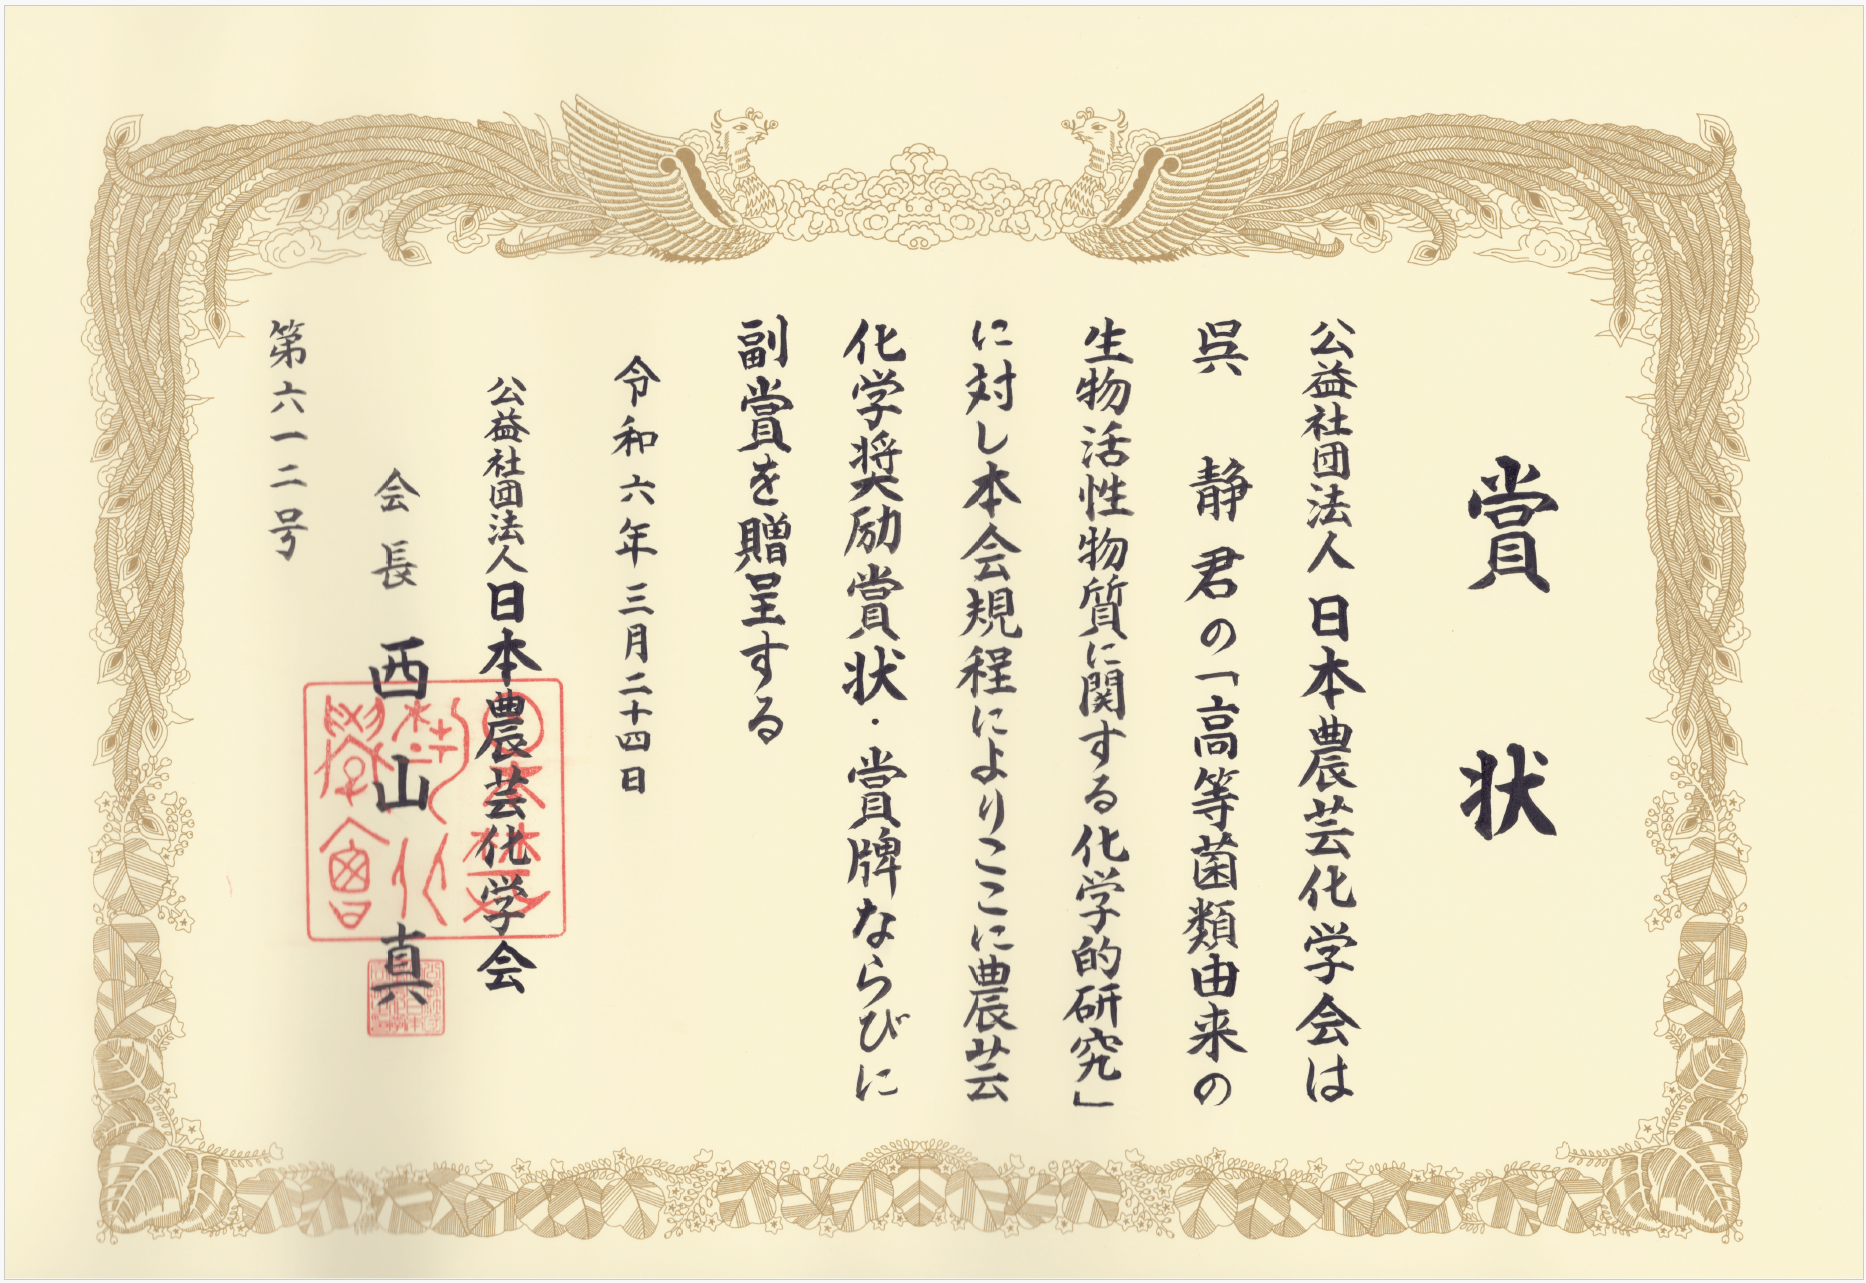 賞状
公益社団法人日本農芸化学会は
呉 静君の「高等菌類由来の
生物活性物質に関する化学的研究」
に対し本会規程によりここに農芸
化学奨励賞状・賞牌ならびに
副賞を贈呈する
令和六年三月二十四日
公益社団法人日本農芸化学会
会長 西山 真
第六一二号
日本農藝化學會